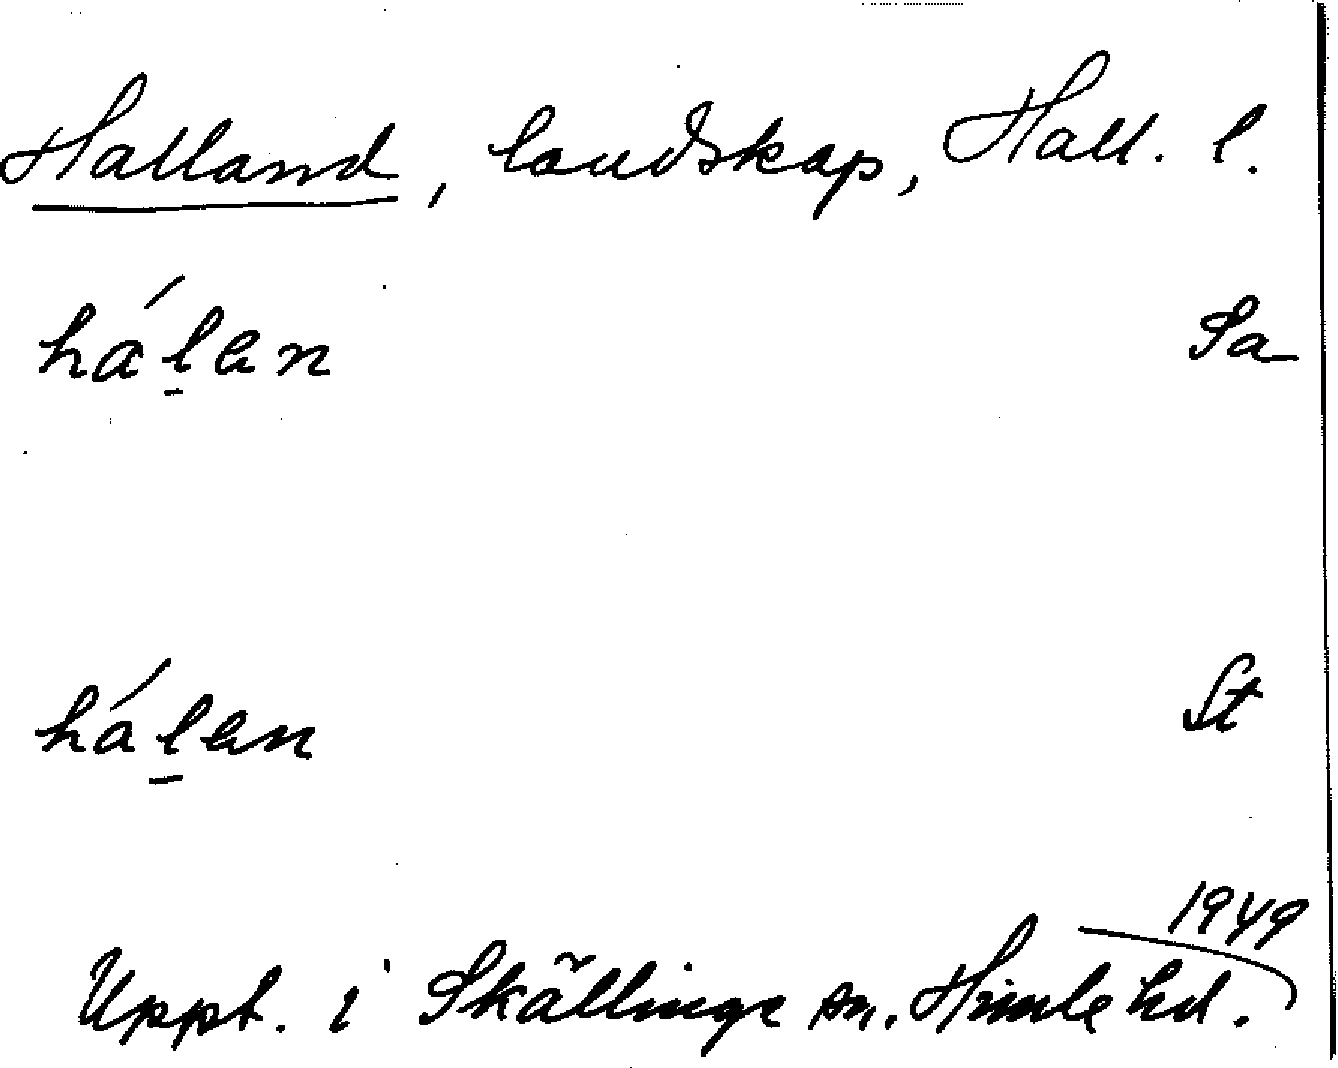 Halland, landskap, Hall. l.
há l̠an Sa
há l̠an St
1949
Uppt. i Skällinge sn. Himle hd.